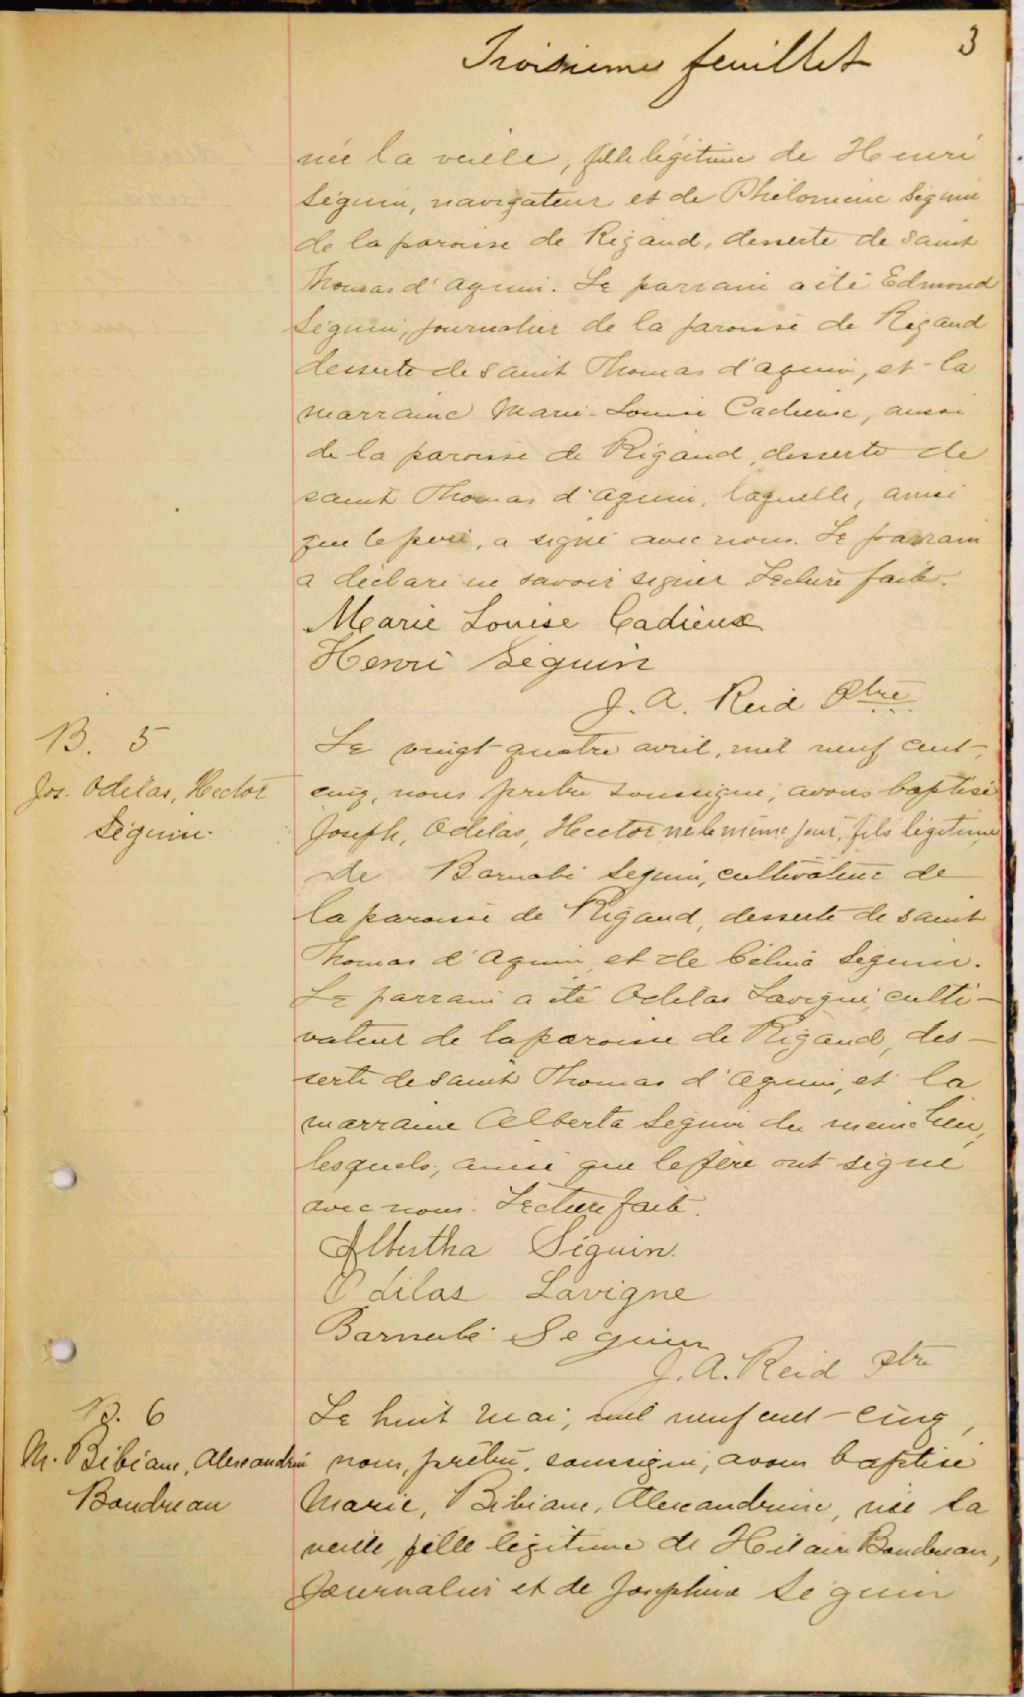 Troisieme feuillet
3
née la veille, fille légitime de Henri
Séguin, navigateur et de Philomène Séguin
de la paroisse de Rigaud, desserte de saint
Thomas d'Aquin. Le parrain a été Edmond
Séguin, journalier de la paroisse de Rigaud
desserte de saint Thomas d'Aquin, et la
marraine Marie-Louise Cadieux, aussi
de la paroisse de Rigaud, desserte de
saint Thomas d'Aquin, laquelle, ainsi
que le père, a signé avec nous. Le parrain
a déclaré ne savoir signer. Lecture faite.
Marie Louise Cadieux
Henri Séguin
J. A. Reid Ptre
B. 5
Jos. Odilas, Hector
Séguin.
Le vingt-quatre avril, mil neuf cent-
cinq, nous prêtre soussigné, avons baptisé
Joseph, Odilas, Hector né le même jour, fils légitime
de Barnabé Séguin, cultivateur de
la paroisse de Rigaud, desserte de saint
Thomas d'Aquin, et de Célina Séguin.
Le parrain a été Odilas Lavigne, culti-
vateur de la paroisse de Rigaud, des-
serte de saint Thomas d'Aquin, et la
marraine Alberta Séguin du même lieu,
lesquels, ainsi que le père ont signé
avec nous. Lecture faite.
Albertha Séguin.
Odilas Lavigne
Barnabé Seguin
J. A. Reid Ptre
B. 6
M. Bibiane, Alexandrine
Boudreau
Le huit mai, mil neuf cent-cinq,
nous, prêtre, soussigné, avons baptisé
Marie, Bibiane, Alexandrine, née la
veille, fille légitime de Hilaire Boudreau,
Journalier et de Josephine Séguin